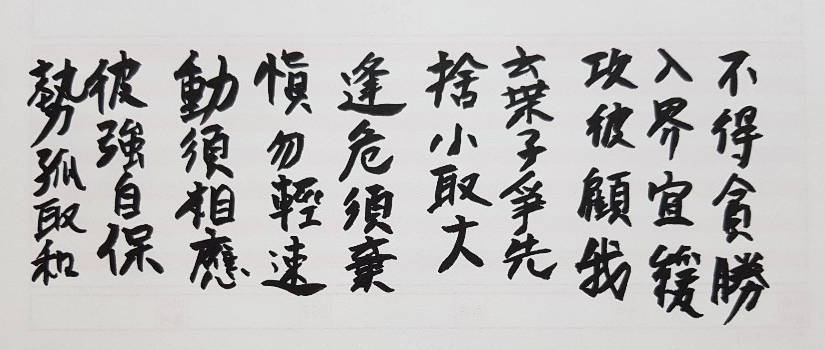 不得貪勝
入界宜緩
攻彼顧我
棄子爭先
捨小取大
逢危須棄
慎勿輕速
動須相應
彼強自保
勢孤取和